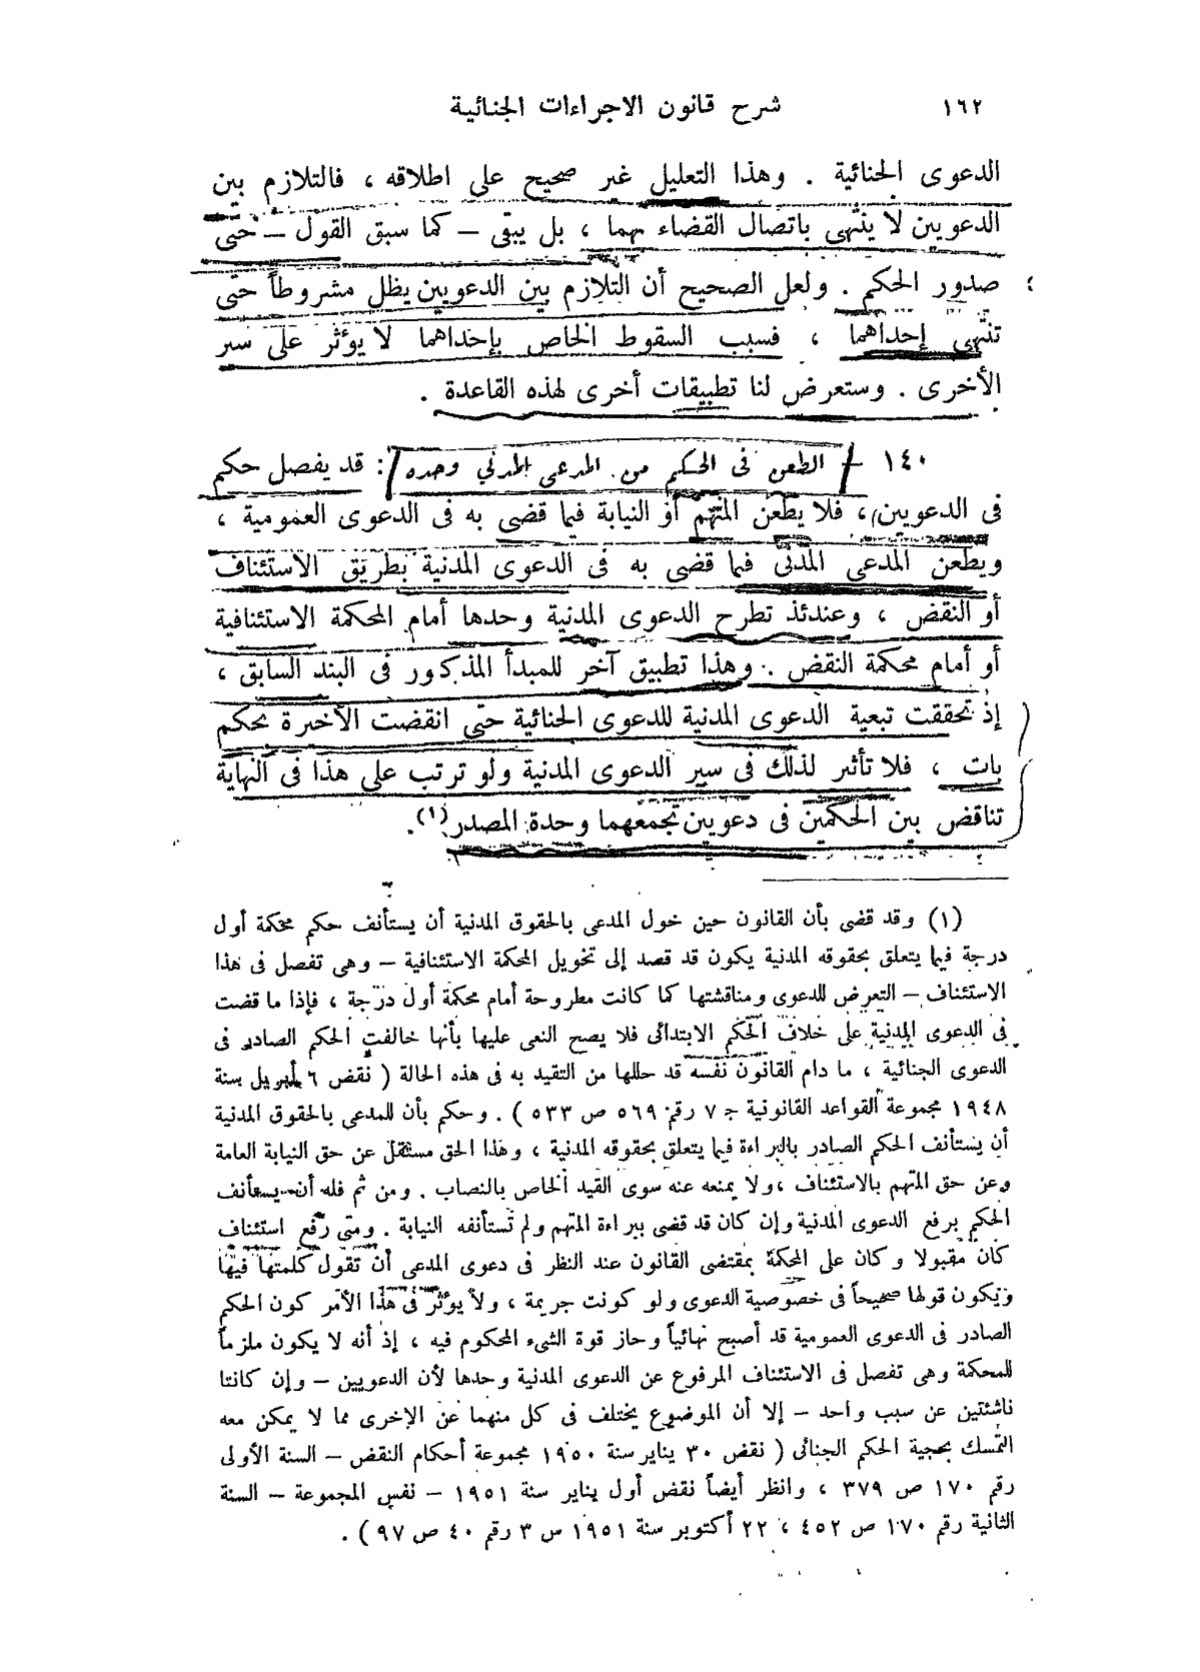 ١٦٢
شرح قانون الاجراءات الجنائية
الدعوى الجنائية . وهذا التعليل غير صحيح على اطلاقه ، فالتلازم بين
الدعويين لا ينتهى باتصال القضاء بهما ، بل يبقى – كما سبق القول – حتى
صدور الحكم . ولعل الصحيح أن التلازم بين الدعويين يظل مشروطاً حتى
تنتهى إحداهما ، فسبب السقوط الخاص بإحداهما لا يؤثر على سير
الأخرى . وستعرض لنا تطبيقات أخرى لهذه القاعدة .
١٤٠ – الطعن فى الحكم من المدعى المدنى وحده : قد يفصل حكم
فى الدعويين ، فلا يطعن المتهم أو النيابة فيما قضى به فى الدعوى العمومية ،
ويطعن المدعى المدنى فيما قضى به فى الدعوى المدنية بطريق الاستئناف
أو النقض ، وعندئذ تطرح الدعوى المدنية وحدها أمام المحكمة الاستئنافية
أو أمام محكمة النقض . وهذا تطبيق آخر للمبدأ المذكور فى البند السابق ،
إذ تحققت تبعية الدعوى المدنية للدعوى الجنائية حتى انقضت الأخيرة بحكم
بات ، فلا تأثير لذلك فى سير الدعوى المدنية ولو ترتب على هذا فى النهاية
تناقض بين الحكمين فى دعويين تجمعهما وحدة المصدر (١).
(١) وقد قضى بأن القانون حين خول المدعى بالحقوق المدنية أن يستأنف حكم محكمة أول
درجة فيما يتعلق بحقوقه المدنية يكون قد قصد إلى تخويل المحكمة الاستئنافية – وهى تفصل فى هذا
الاستئناف – التعرض للدعوى ومناقشتها كما كانت مطروحة أمام محكمة أول درجة ، فإذا ما قضت
فى الدعوى المدنية على خلاف الحكم الابتدائى فلا يصح النعى عليها بأنها خالفت الحكم الصادر فى
الدعوى الجنائية ، ما دام القانون نفسه قد حللها من التقيد به فى هذه الحالة ( نقض ٦ أبريل سنة
١٩٤٨ مجموعة القواعد القانونية ج ٧ رقم ٥٦٩ ص ٥٣٣ ) . وحكم بأن للمدعى بالحقوق المدنية
أن يستأنف الحكم الصادر بالبراءة فيما يتعلق بحقوقه المدنية ، وهذا الحق مستقل عن حق النيابة العامة
وعن حق المتهم بالاستئناف ، ولا يمنعه عنه سوى القيد الخاص بالنصاب . ومن ثم فله أن يستأنف
الحكم برفع الدعوى المدنية وإن كان قد قضى ببراءة المتهم ولم تستأنفه النيابة . ومتى رفع استئناف
كان مقبولا وكان على المحكمة بمقتضى القانون عند النظر فى دعوى المدعى أن تقول كلمتها فيها
ويكون قولها صحيحاً فى خصوصية الدعوى ولو كونت جريمة ، ولا يؤثر فى هذا الأمر كون الحكم
الصادر فى الدعوى العمومية قد أصبح نهائياً وحاز قوة الشىء المحكوم فيه ، إذ أنه لا يكون ملزماً
للمحكمة وهى تفصل فى الاستئناف المرفوع عن الدعوى المدنية وحدها لأن الدعويين – وإن كانتا
ناشئتين عن سبب واحد – إلا أن الموضوع يختلف فى كل منهما عن الإخرى مما لا يمكن معه
التمسك بحجية الحكم الجنائى ( نقض ٣٠ يناير سنة ١٩٥٠ مجموعة أحكام النقض – السنة الأولى
رقم ١٧٠ ص ٣٧٩ ، وانظر أيضاً نقض أول يناير سنة ١٩٥١ – نفس المجموعة – السنة
الثانية رقم ١٧٠ ص ٤٥٢ ، ٢٢ أكتوبر سنة ١٩٥١ س ٣ رقم ٤٠ ص ٩٧ ) .